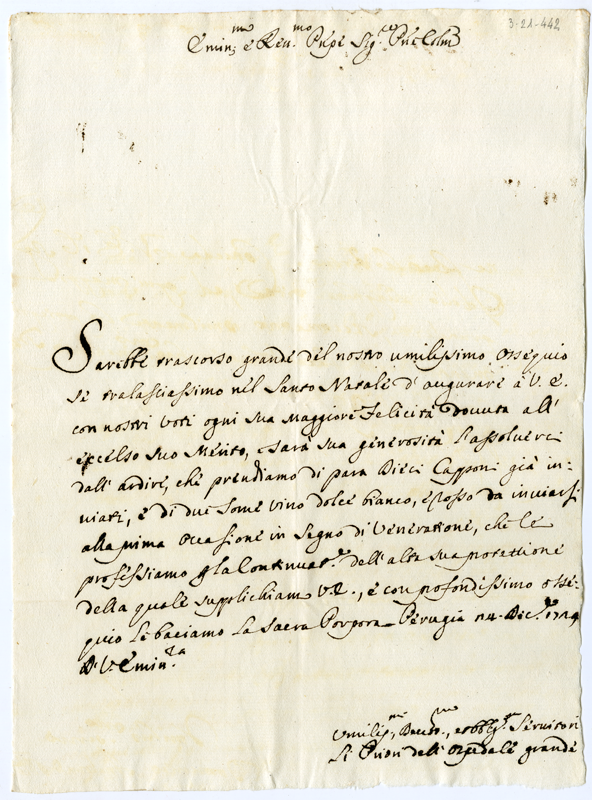 3-21-442
Emin:mo e Reu.mo Pnpe Sig.re Pne Colmo
Sarebbe trascorso grande del nostro umilissimo ossequio
se tralasciassimo nel Santo Natale d'augurare à V. E.
con nostri voti ogni sua maggiore felicità douuta all'
eccelso suo merito, sarà sua generosità l'assoluerci
dall'ardire, che prendiamo di para Dieci Capponi già in=
uiati, e di due some vino dolce bianco, e rosso da inuiarsi
alla prima occasione in segno di Veneratione, che le
professiamo p la Continuat.e dell'alta sua protettione
della quale supplichiam V.E., e con profondissimo osse=
quio le baciamo la Sacra Porpora Perugia 14. Dic.e 1724
D. V. Emin.za
Vmiliss.mi, Deuot.mi, et obblig.mi Seruitori
Li Priori dell'Ospedale grande